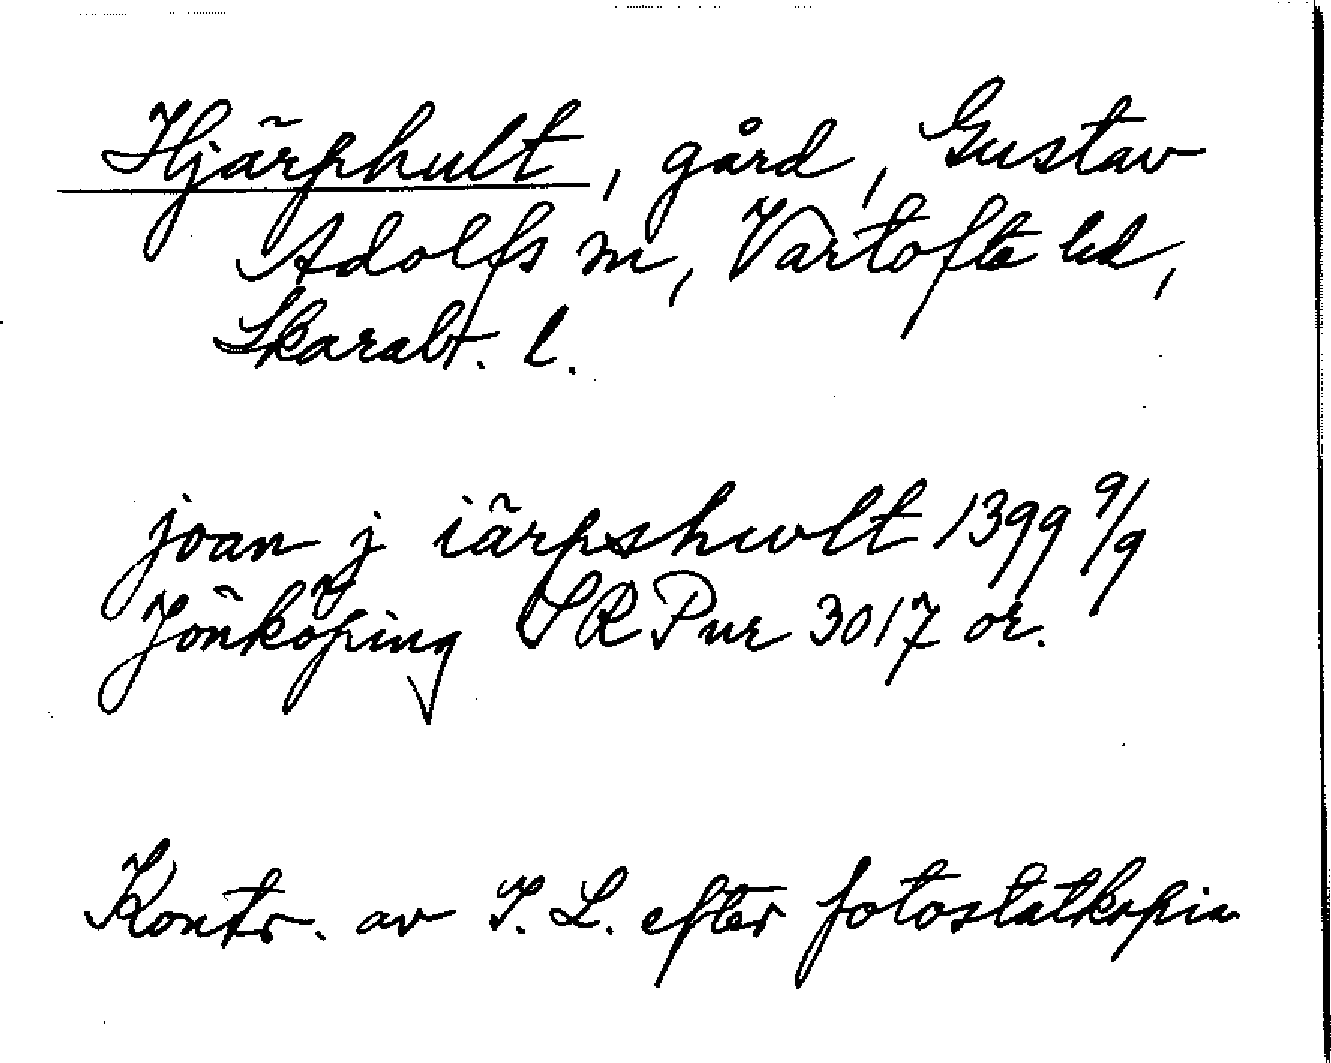 Hjärphult, gård, Gustav
Adolfs sn, Vartofta hd,
Skarab. l.
joan j iärpshwlt 1399 9/9
Jönköping SRPnr 3017 or.
Kontr. av I. L. efter fotostatkopia